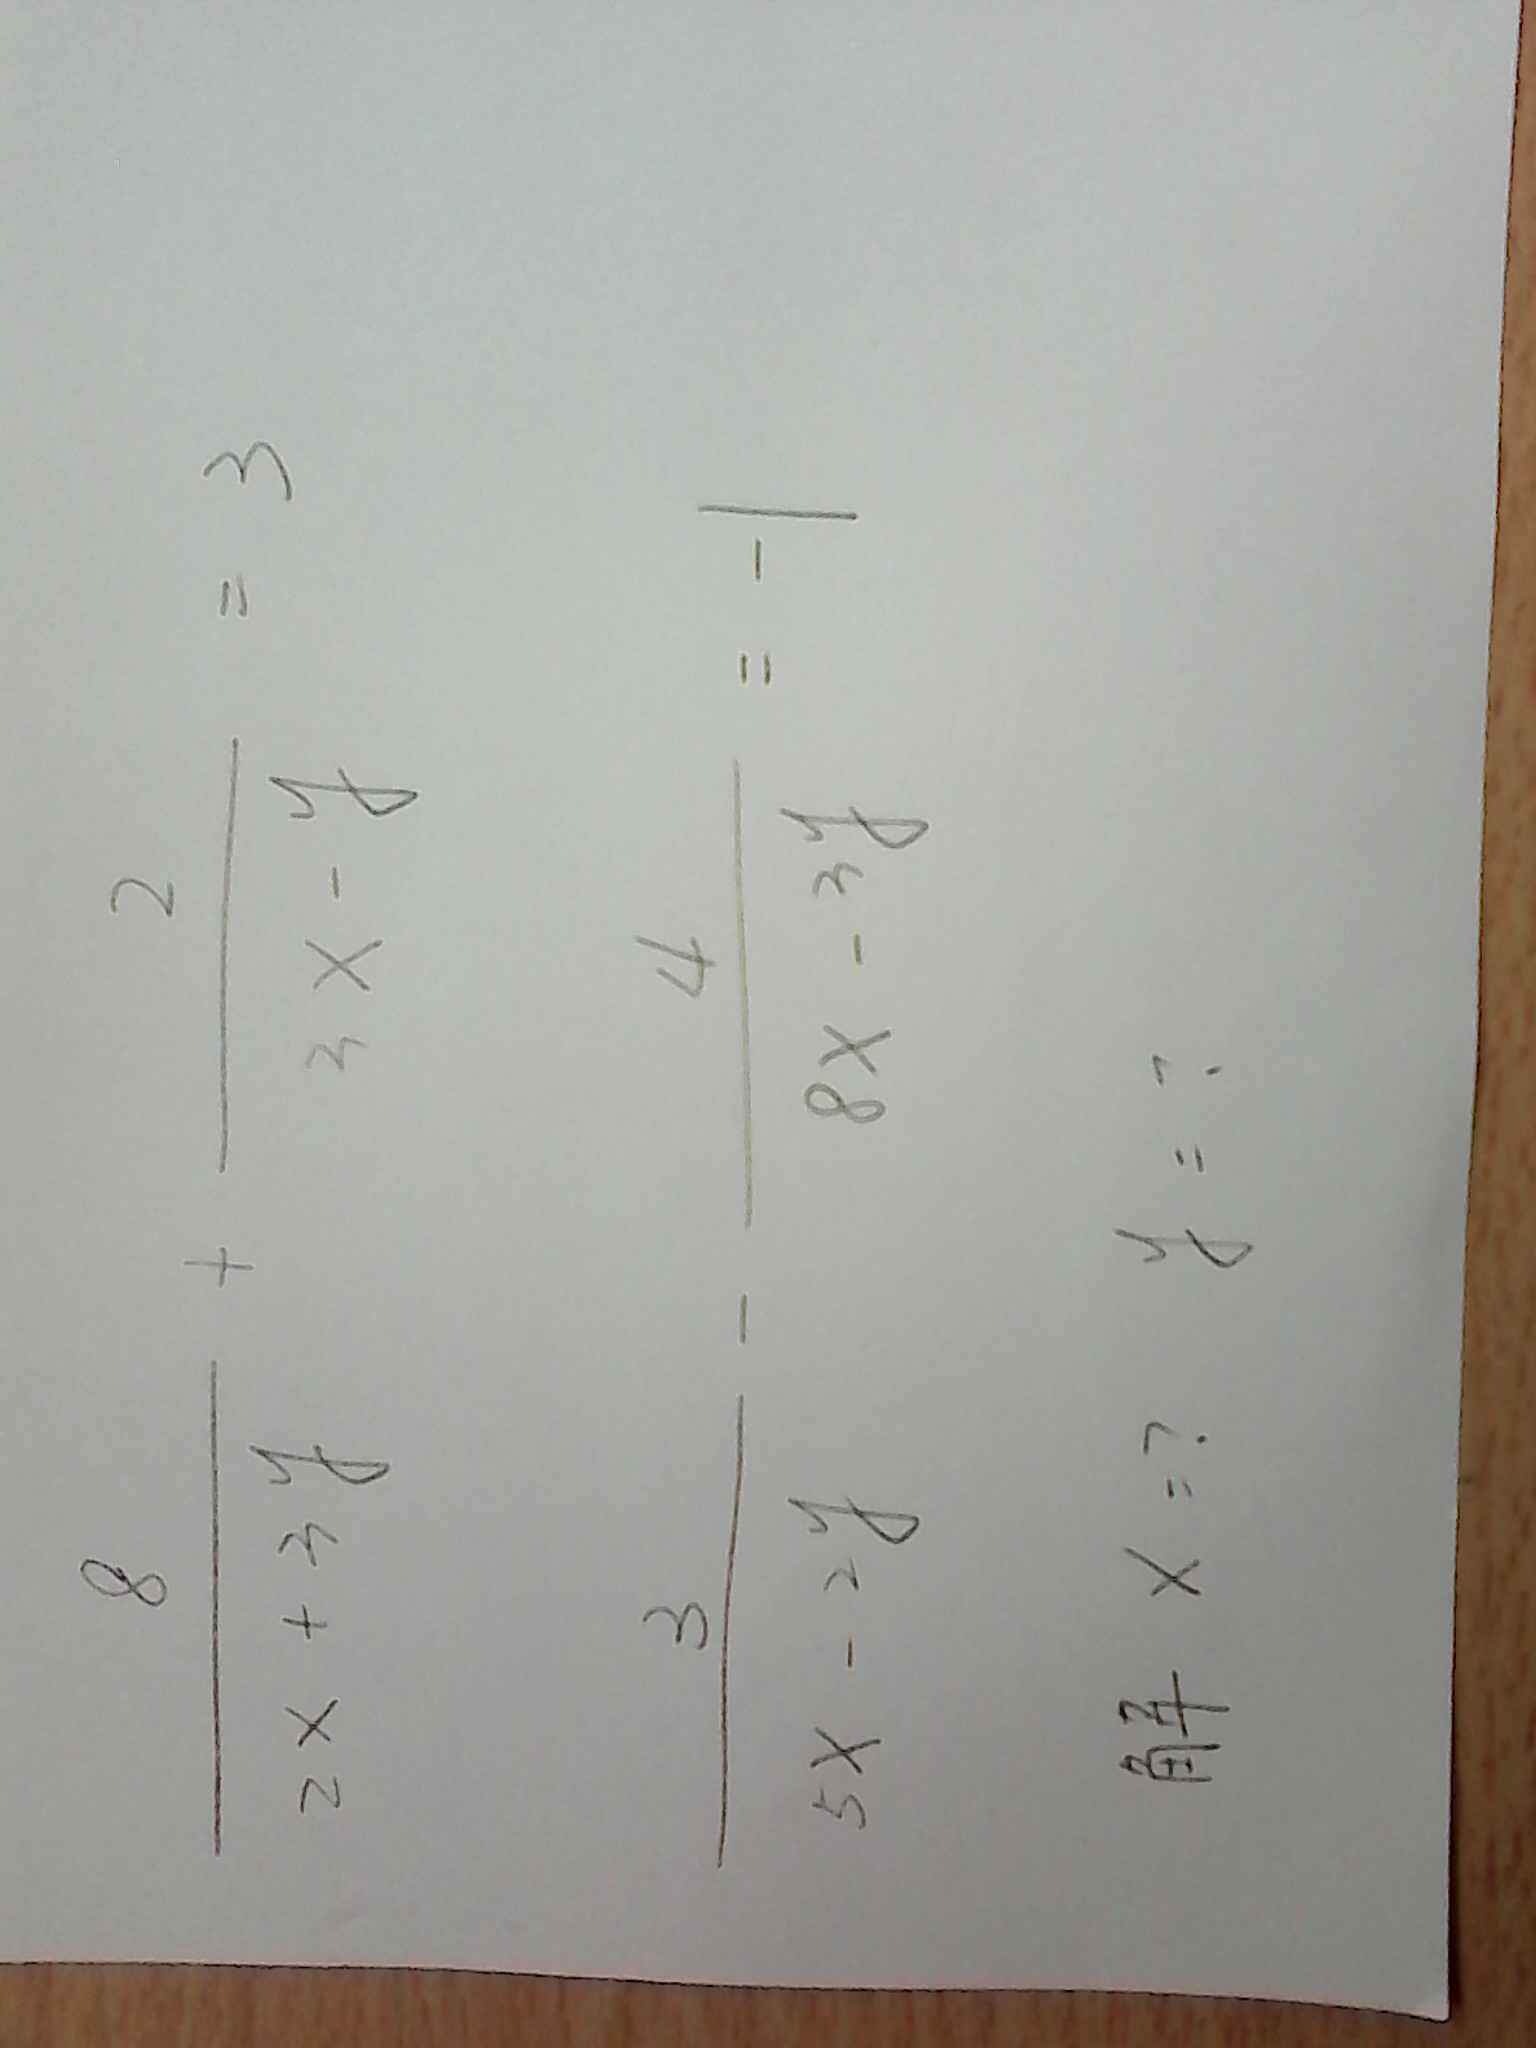 8/(2x + 3y) + 2/(3x - y) = 3
3/(5x - 2y) - 4/(8x - 3y) = -1
解 x = ? y = ?